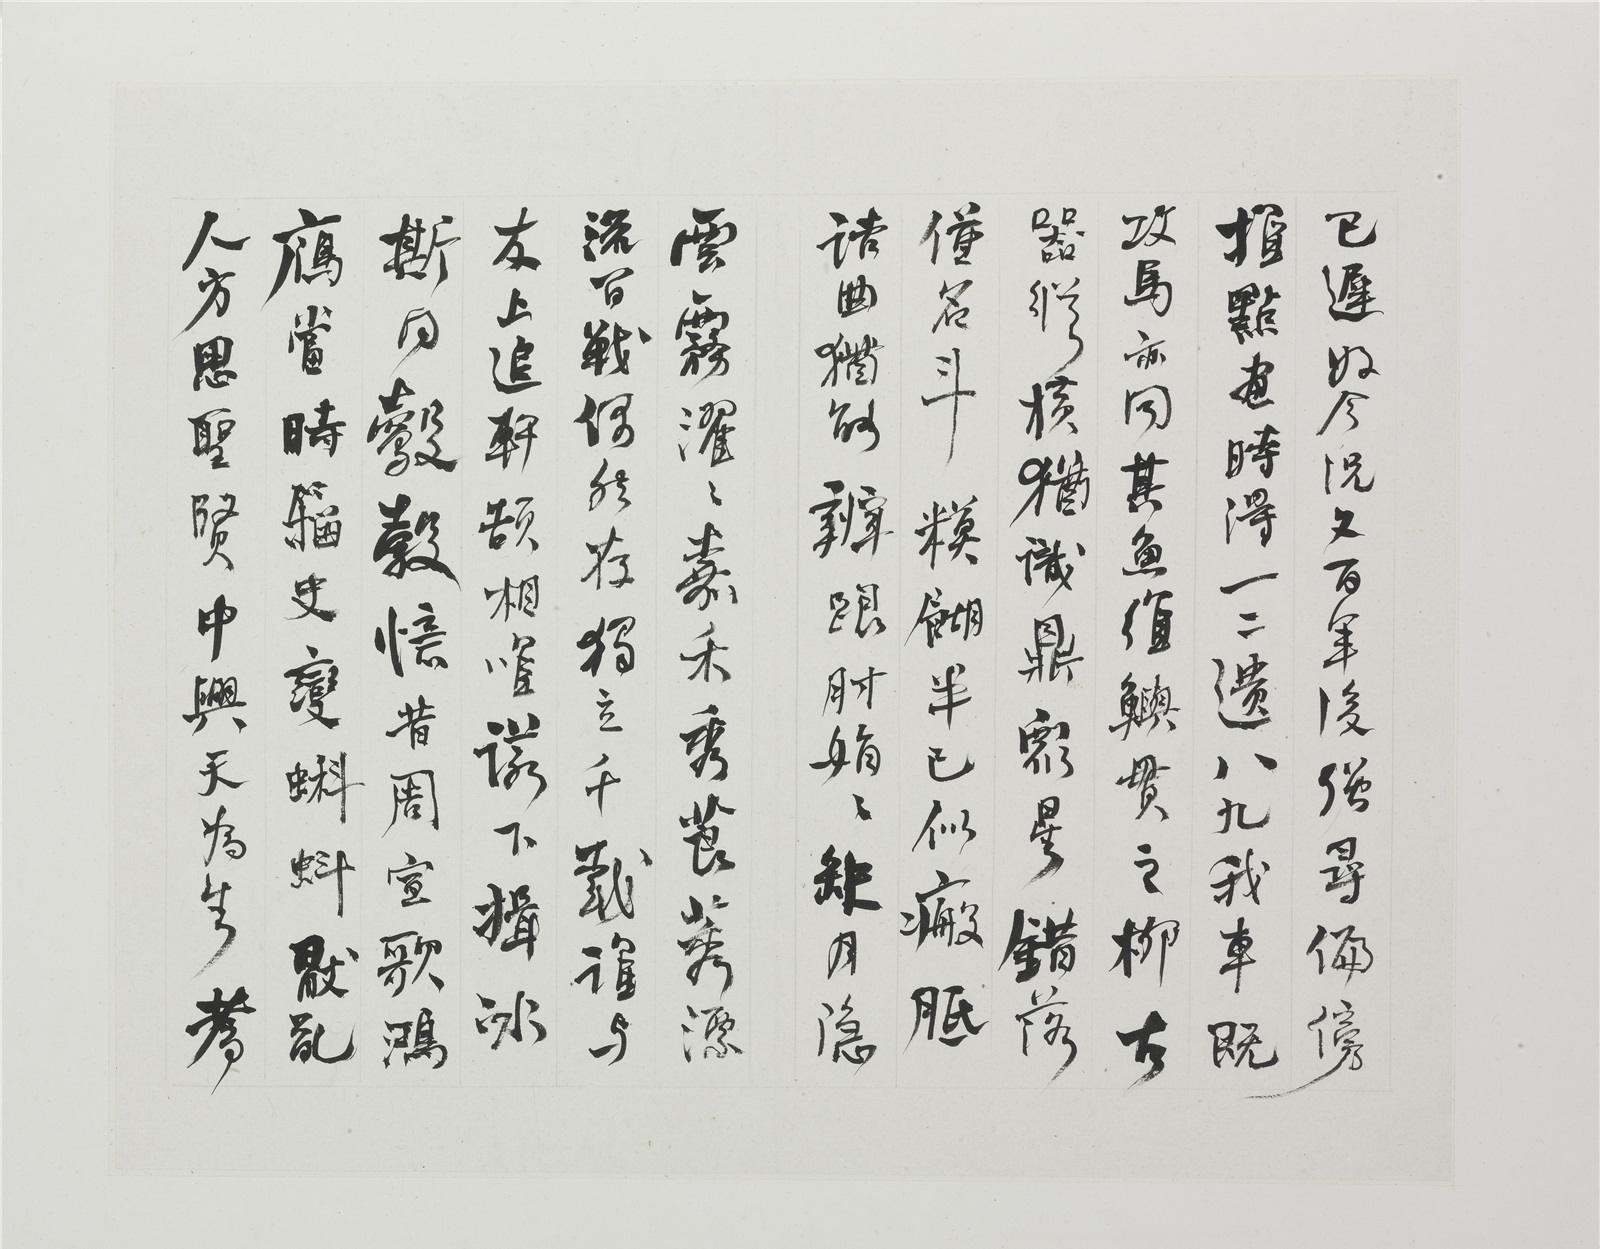 已遲如今況又百年後強尋偏傍
推點畫時得一二遺八九我車既
攻馬亦同其魚維鱮貫之柳古
器縱橫猶識鼎眾星錯落
僅名斗糢餬半已似瘢胝
詰曲猶能辨跟肘娟〻缺月隱
雲霧濯〻嘉禾秀莨莠漂
流百戰偶然存獨立千載誰與
友上追軒頡相唯諾下揖冰
斯同鷇㝅憶昔周宣歌鴻
鴈當時籀史變蝌蚪厭亂
人方思聖賢中興天為生耆